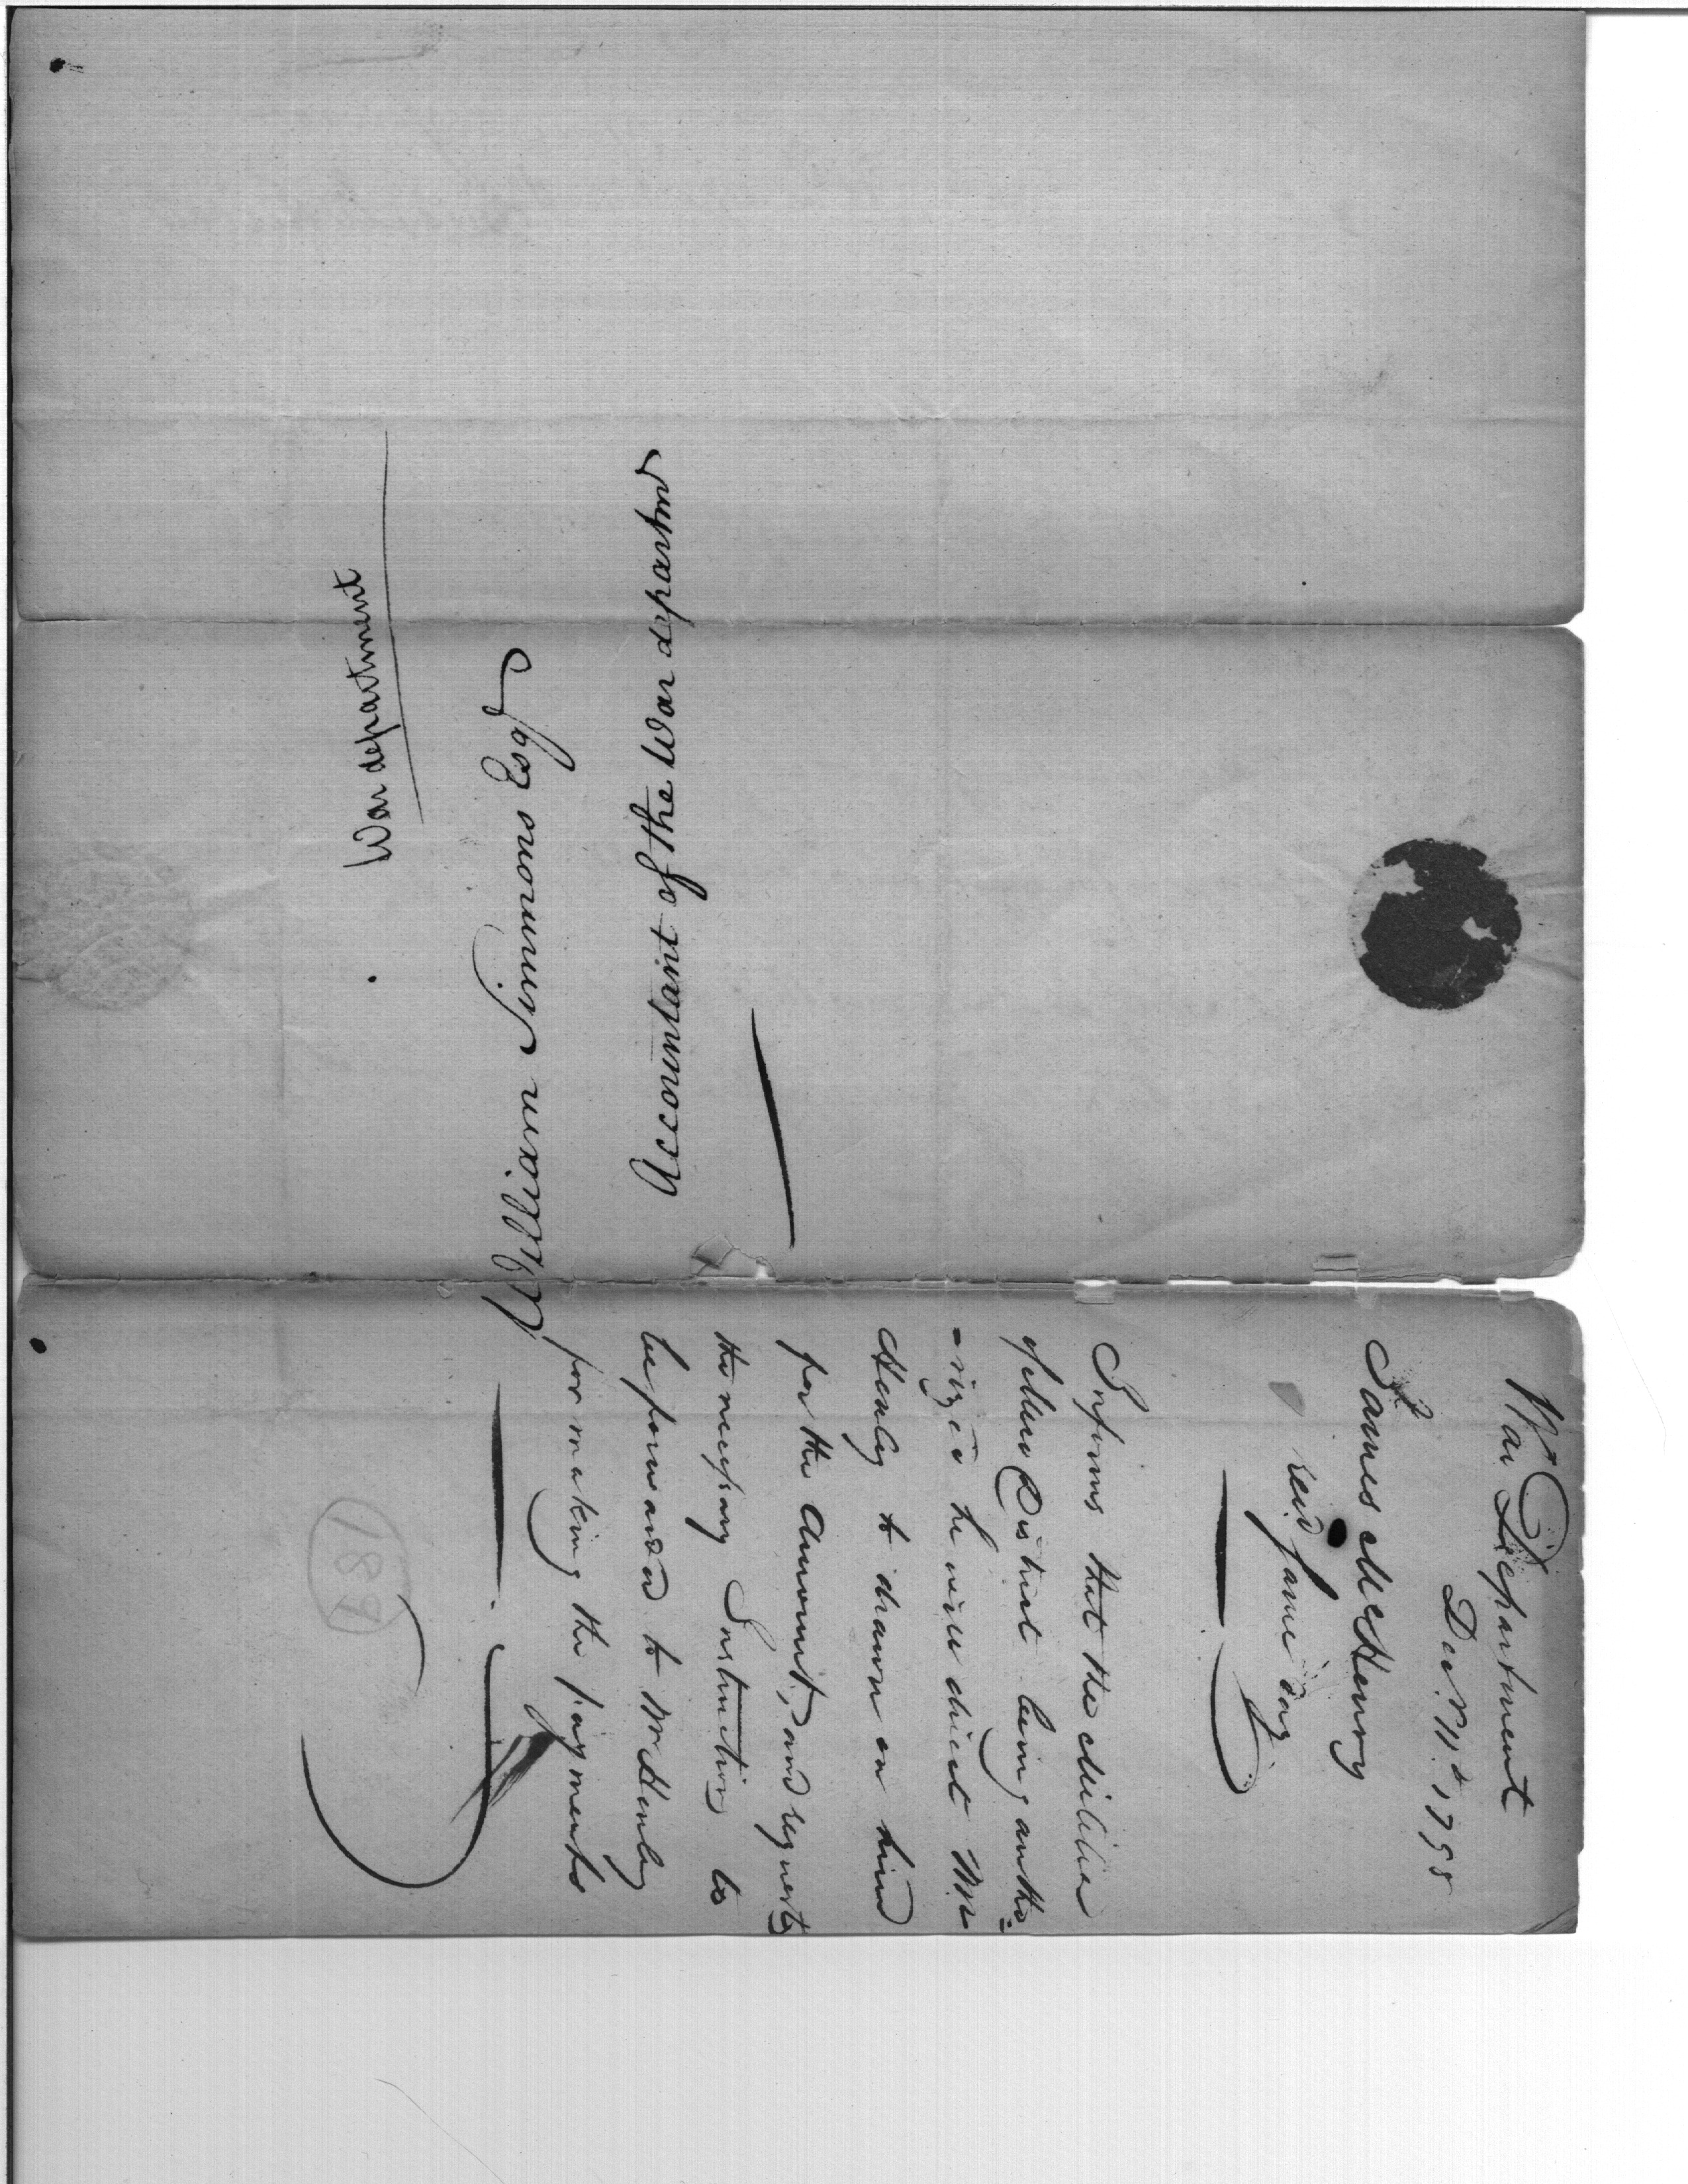 War department
William Simmons Esqr
Accountant of the War departmt
War Department
Decr 11th 1798
James McHenry
recd same day
Informs that the Militia
of Mero District being autho=
=rized he will direct Mr
Henley to drawn on him
for the Amount, and requests
the necessary Instructions to
be forwarded to Mr Henley
for making the payments
189